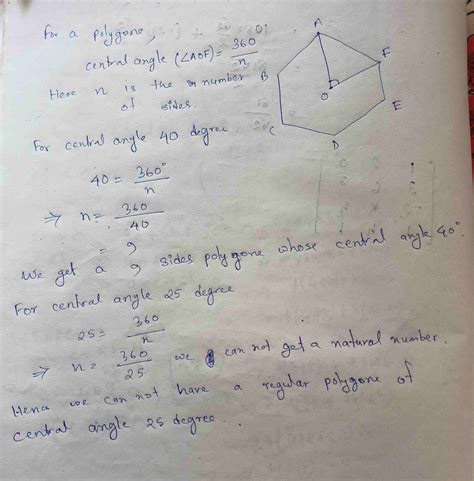 For a polygone,
central angle (∠AOF) = 360/n
Here n is the number
of sides.
A
B
C
D
E
F
O
For central angle 40 degree.
40 = 360°/n
⇒ n = 360/40
= 9
We get a 9 sides polygone whose central angle 40°.
For central angle 25 degree
25 = 360/n
⇒ n = 360/25 we can not get a natural number.
Hena we can not have a regular polygone of
central angle 25 degree..